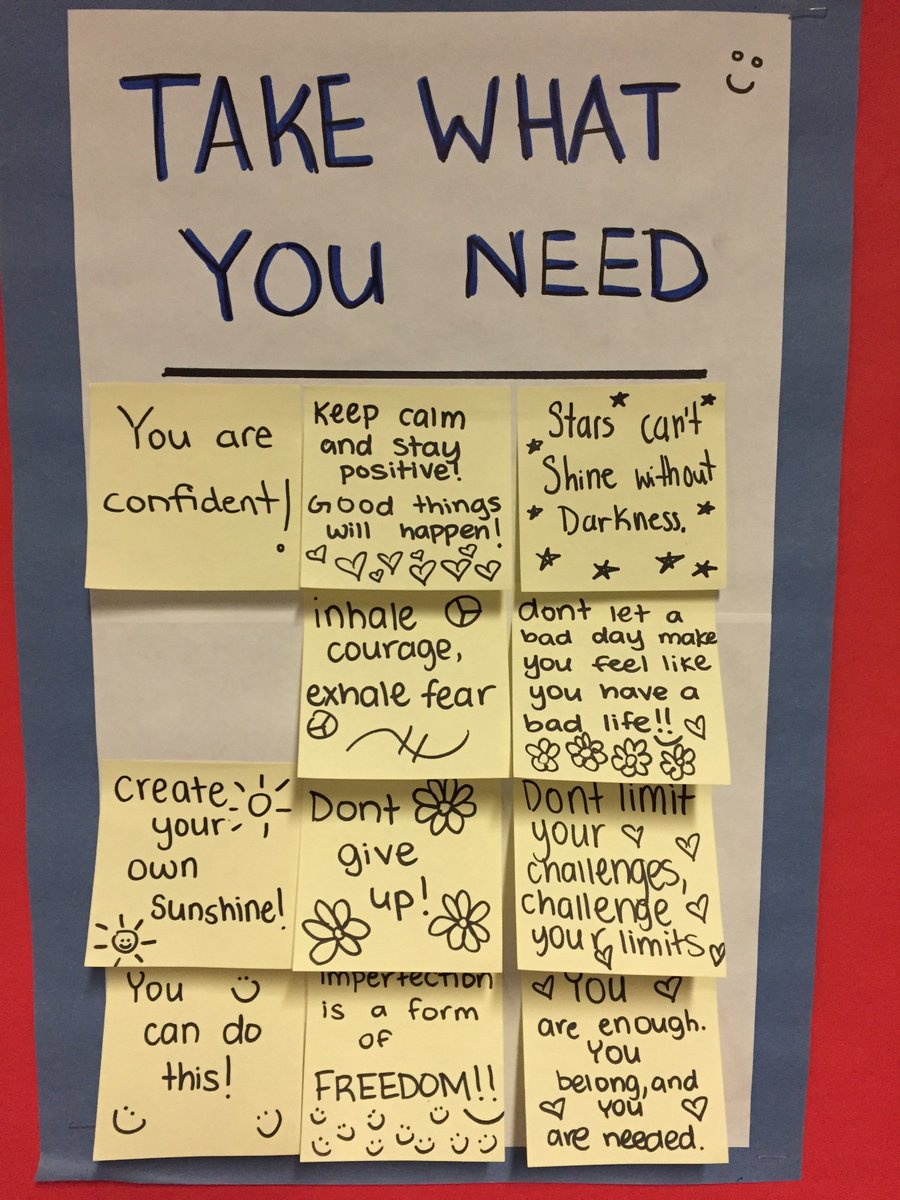 TAKE WHAT
YOU NEED
You are
confident!
Keep calm
and stay
positive!
Good things
will happen!
Stars can't
Shine without
Darkness.
inhale
courage,
exhale fear
dont let a
bad day make
you feel like
you have a
bad life!!
Create
your
own
sunshine!
Dont
give
up!
Dont limit
your
challenges,
challenge
your limits
You
can do
this!
imperfection
is a form
of
FREEDOM!!
You
are enough.
You
belong, and
you
are needed.